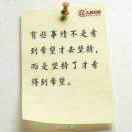 人民网
有些事情不是看
到希望才去坚持，
而是坚持了才看
得到希望。